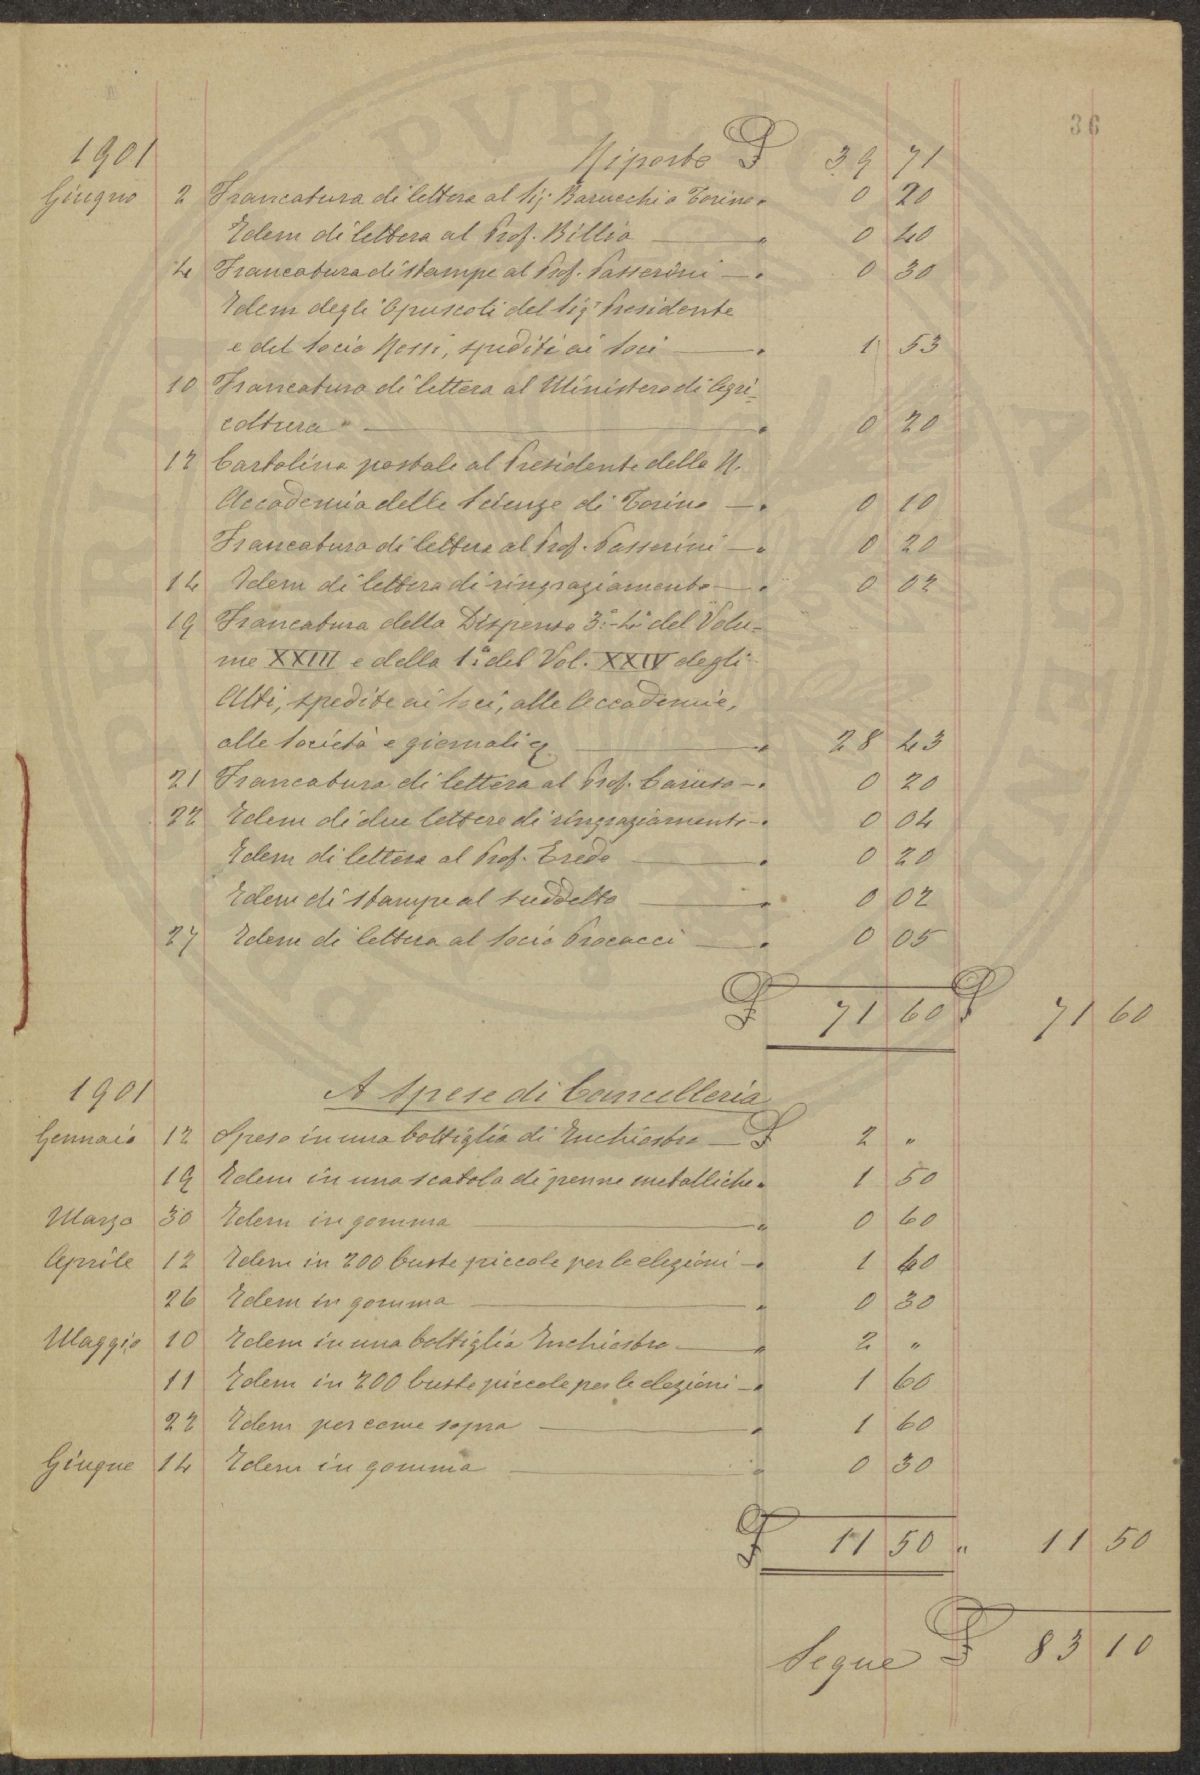 36
1901 Riporto £ 39 71
Giugno 2 Francatura di lettera al Sig. Barucchi a Torino " 0 20
Idem di lettera al Prof. Billia " 0 40
4 Francatura di stampe al Prof. Passerini " 0 30
Idem degli Opuscoli del Sigr Presidente
e del Socio Rossi, spediti ai Soci " 1 53
10 Francatura di lettera al Ministero di Agri-
coltura " " 0 20
12 Cartolina postale al Presidente della R.
Accademia delle Scienze di Torino " 0 10
Francatura di lettera al Prof. Passerini " 0 20
14 Idem di lettera di ringraziamento " 0 02
19 Francatura della Dispensa 3a-4a del Volu-
me XXIII e della 1a del Vol. XXIV degli
Atti, spedite ai Soci, alle Accademie,
alle Società e giornali " 28 43
21 Francatura di lettera al Prof. Caruso " 0 20
22 Idem di due lettere di ringraziamento " 0 04
Idem di lettera al Prof. Eredo " 0 20
Idem di stampe al suddetto " 0 02
27 Idem di lettera al Socio Procacci " 0 05
£ 71 60 £ 71 60
1901 A Spese di Cancelleria
Gennaio 12 Spesa in una bottiglia di Inchiostro £ 2 "
19 Idem in una scatola di penne metalliche " 1 50
Marzo 30 Idem in gomma " 0 60
Aprile 12 Idem in 200 buste piccole per le elezioni " 1 60
26 Idem in gomma " 0 30
Maggio 10 Idem in una bottiglia Inchiostro " 2 "
11 Idem in 200 buste piccole per le elezioni " 1 60
22 Idem per come sopra " 1 60
Giugne 14 Idem in gomma " 0 30
£ 11 50 " 11 50
Segue £ 83 10